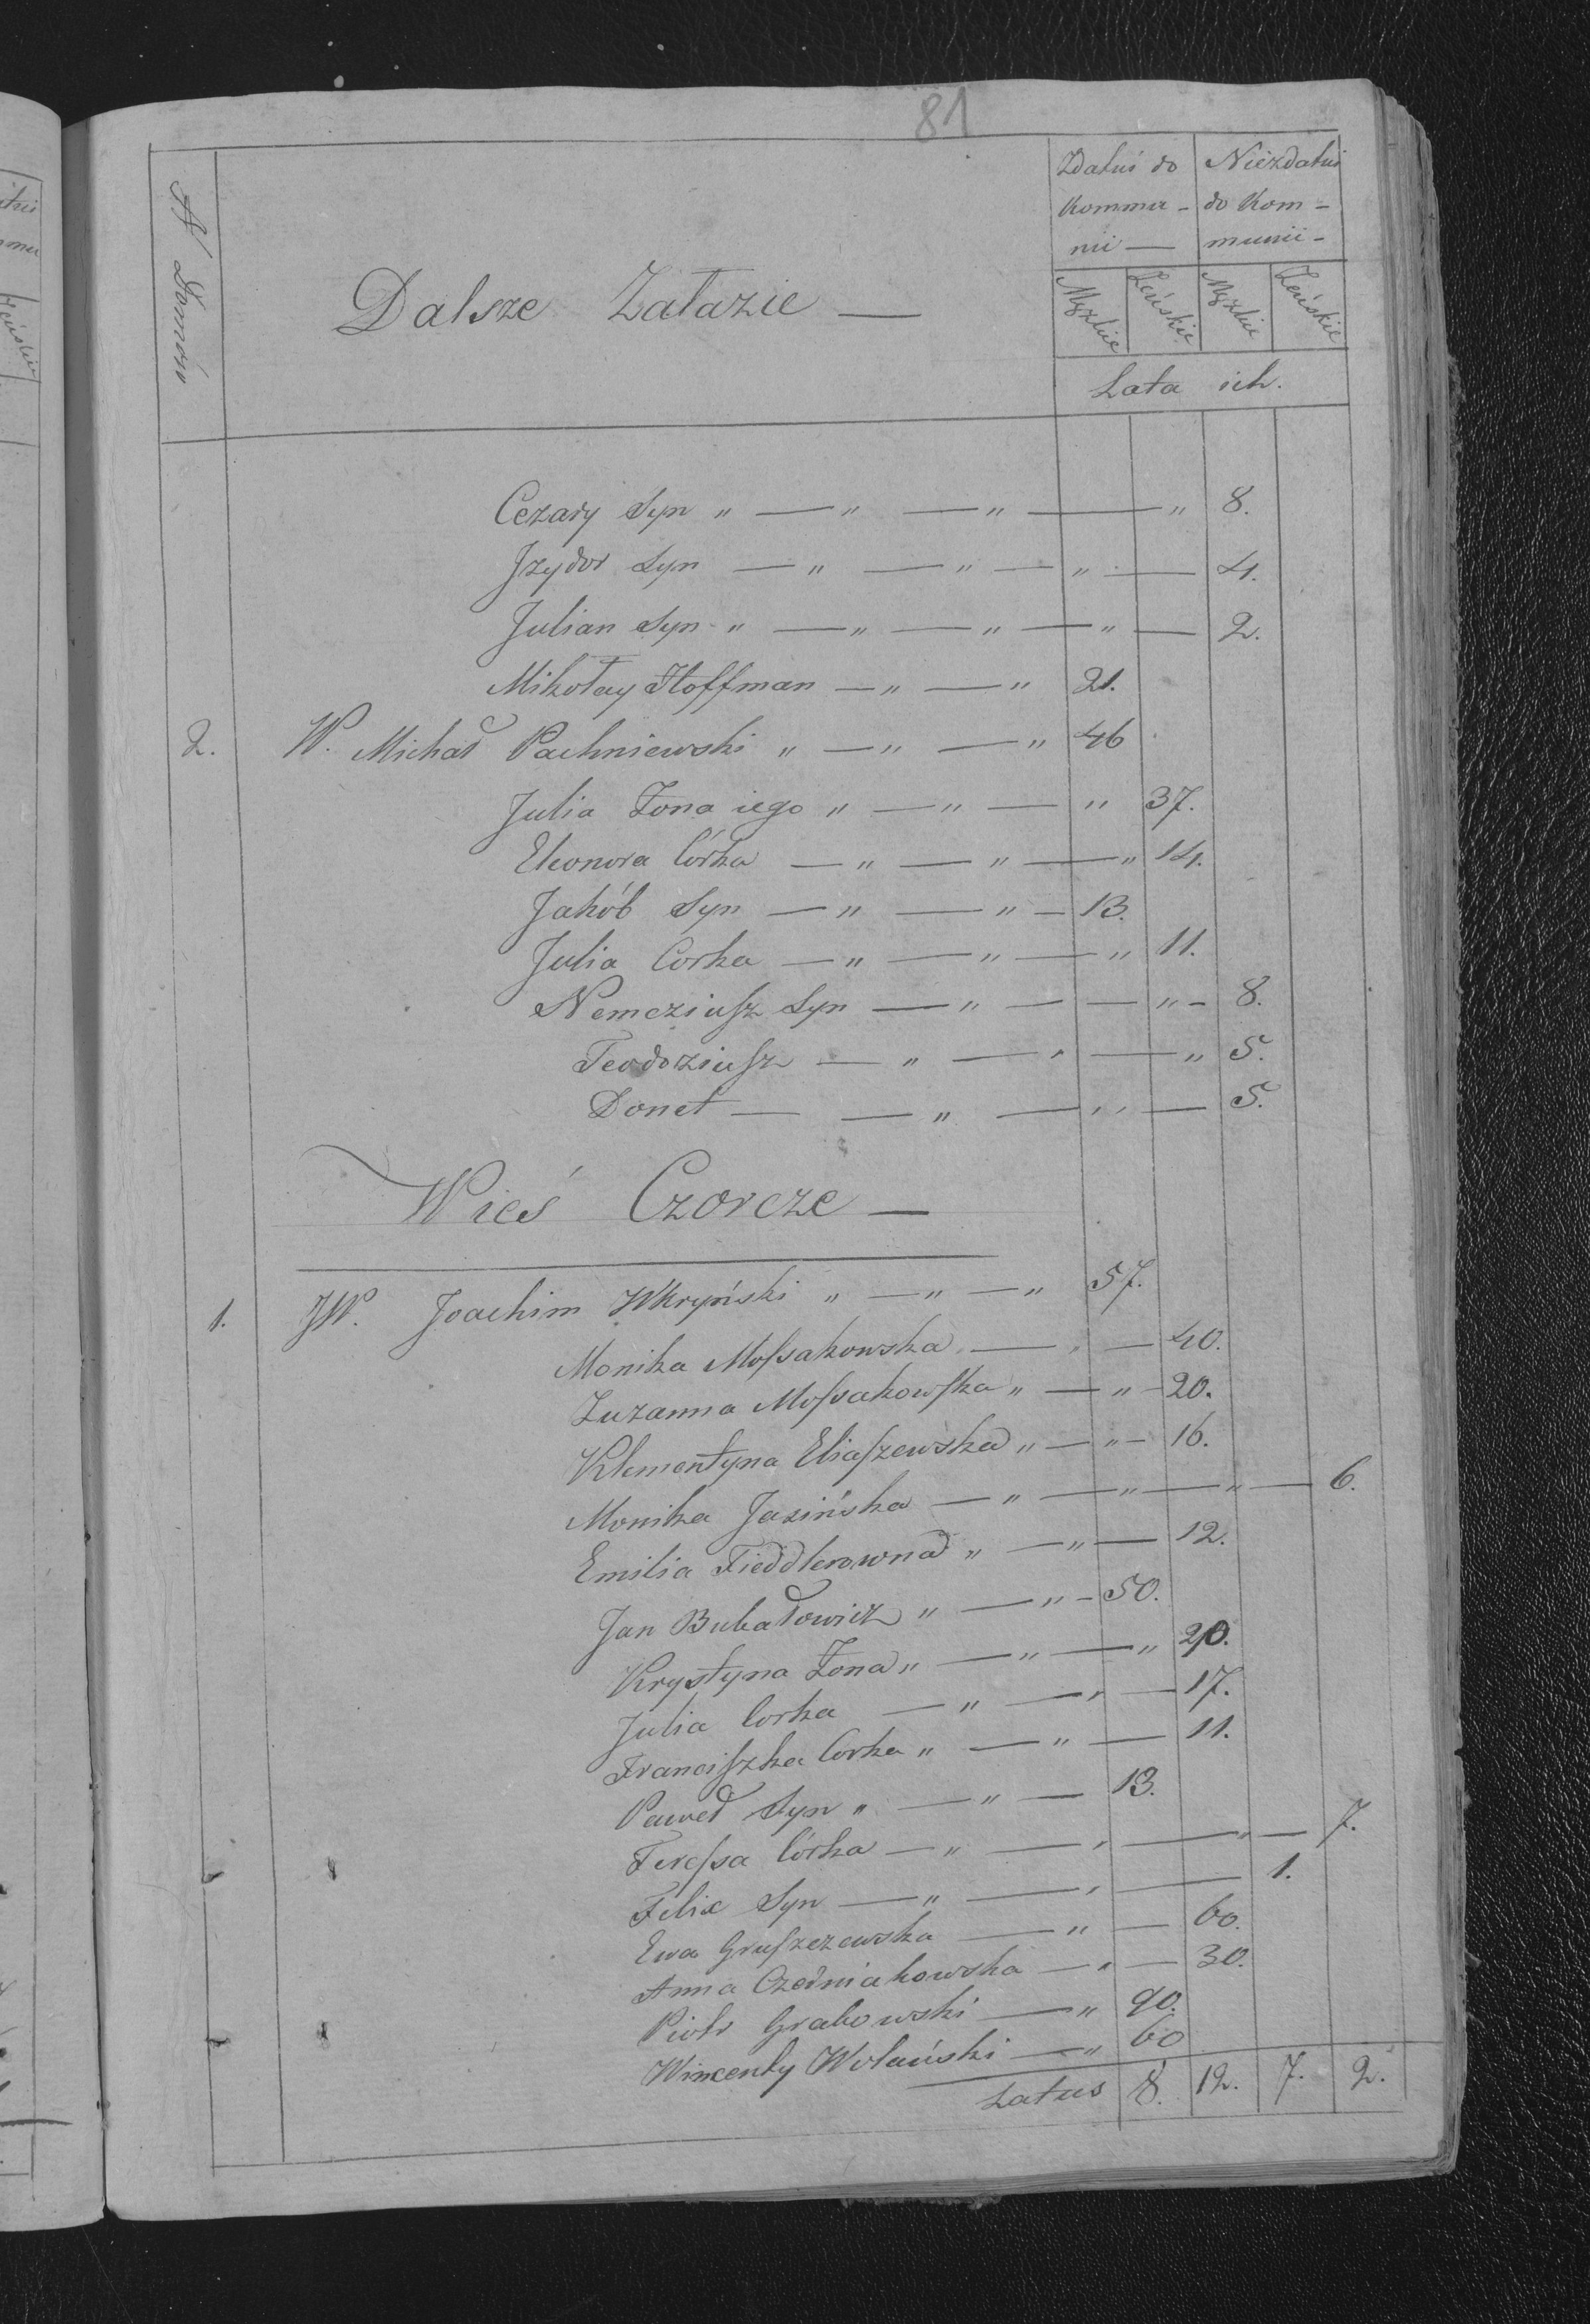 81
N Domów
Dalsze Załazie —
Zdatni do Kommu-nii —
Niezdatni do Kom-munii -
Męzkie Żeńskie Męzkie Żeńskie
Lata ich.
Cezary Syn " — " — " — " 8.
Jzydor Syn — " — " — " — 4.
Julian Syn " — " — " — " — 2.
Mikołay Hoffman — " — " 21.
2. W. Michał Pachniewski " — " — " 46
Julia Żona iego " — " — " 37.
Eleonora Córka — " — " — " 14.
Jakób Syn — " — " — 13.
Julia Corka — " — " — " 11.
Nemeziusz Syn — " — — " - 8.
Teodoziusz — " — " — " 5.
Donet — — " — " — 5.
Wieś Czorcze —
1. JW. Joachim Wkryński " — " — " 57.
Monika Mossakowska — " — 40.
Zuzanna Mossakowska " — " - 20.
Klementyna Eliaszewska " — " - 16.
Monika Jazińska — " — " — " — 6.
Emilia Fieddlerowna " — " — 12.
Jan Bubałowicz " — " - 50.
Krystyna Żona " — " — " 20.
Julia Corka — " — " — 17.
Franciszka Corka " — " — 11.
Paweł Syn " — " — 13.
Teressa Córka — " — " — " — 7.
Felix Syn — " — " — 1.
Ewa Gruszczewska — " — 60.
Anna Czedniakowska — " — 30.
Piotr Grabowski — " 90.
Wincenty Wolański — " 60
Latus 8. 12. 7. 2.